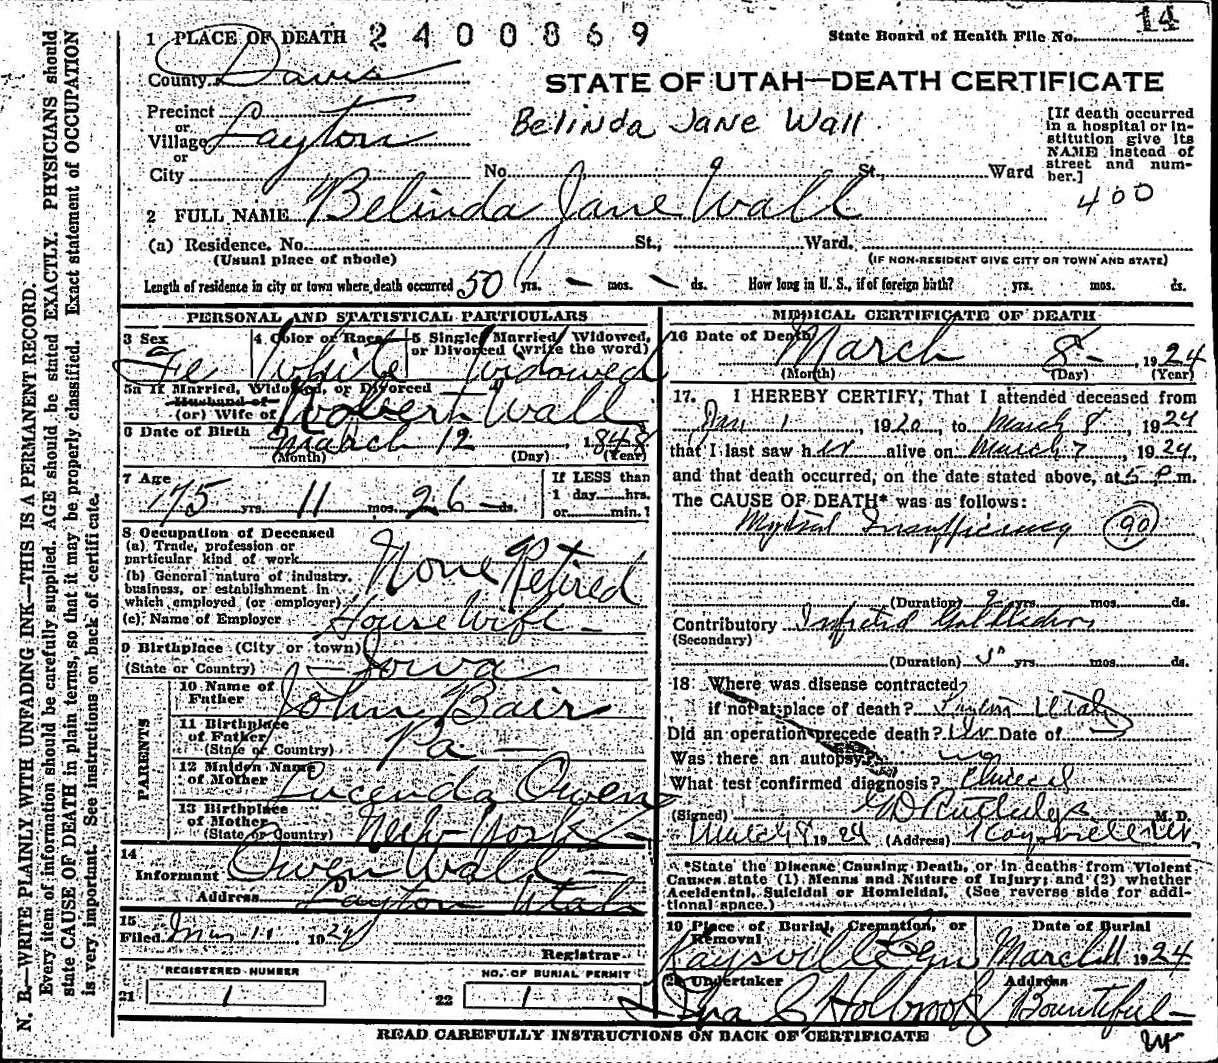 14
1 PLACE OF DEATH 2400869 State Board of Health File No.
County Davis
STATE OF UTAH—DEATH CERTIFICATE
Precinct
or
Village Layton
or
City No. St., Ward
Belinda Jane Wall
[If death occurred
in a hospital or in-
stitution give its
NAME instead of
street and num-
ber.]
400
2 FULL NAME Belinda Jane Wall
(a) Residence. No. St., Ward.
(Usual place of abode) (IF NON-RESIDENT GIVE CITY OR TOWN AND STATE)
Length of residence in city or town where death occurred 50 yrs. — mos. — ds. How long in U. S., if of foreign birth? yrs. mos. ds.
PERSONAL AND STATISTICAL PARTICULARS
3 Sex 4 Color or Race 5 Single, Married, Widowed,
or Divorced (write the word)
Fe White Widowed
5a If Married, Widowed, or Divorced
Husband of
(or) Wife of Robert Wall
6 Date of Birth March 12, 1848
(Month) (Day) (Year)
7 Age If LESS than
75 yrs. 11 mos. 26 ds. 1 day hrs.
or min.?
8 Occupation of Deceased
(a) Trade, profession or
particular kind of work None Retired
(b) General nature of industry,
business, or establishment in
which employed (or employer)
(c) Name of Employer House Wife —
9 Birthplace (City or town)
(State or Country) — Iowa
PARENTS
10 Name of
Father John Bair
11 Birthplace
of Father
(State or Country) Pa —
12 Maiden Name
of Mother Lucenda Owens
13 Birthplace
of Mother
(State or Country) New York —
14
Informant Owen Wall —
Address Layton Utah
15
Filed Mar 11, 1924
Registrar
REGISTERED NUMBER NO. OF BURIAL PERMIT
21 1 22 1
MEDICAL CERTIFICATE OF DEATH
16 Date of Death March 8 — 1924
(Month) (Day) (Year)
17. I HEREBY CERTIFY, That I attended deceased from
Jan 1, 1920, to March 8, 1924
that I last saw her alive on March 7, 1924,
and that death occurred, on the date stated above, at 5 P.m.
The CAUSE OF DEATH* was as follows:
Insufficiency 90
(Duration) yrs. mos. ds.
Contributory Infected Gall bladder
(Secondary)
(Duration) yrs. mos. ds.
18 Where was disease contracted
if not at place of death? Layton Utah
Did an operation precede death? Date of
Was there an autopsy? no
What test confirmed diagnosis? Clinical
(Signed) M. D.
March 8 1924 (Address) Kaysville
*State the Disease Causing Death, or in deaths from Violent
Causes state (1) Means and Nature of Injury; and (2) whether
Accidental, Suicidal or Homicidal. (See reverse side for addi-
tional space.)
19 Place of Burial, Cremation, or Date of Burial
Removal
Kaysville March 11 1924
20 Undertaker Address
Holbrook Bountiful —
READ CAREFULLY INSTRUCTIONS ON BACK OF CERTIFICATE
N. B.—WRITE PLAINLY WITH UNFADING INK—THIS IS A PERMANENT RECORD.
Every item of information should be carefully supplied. AGE should be stated EXACTLY. PHYSICIANS should
state CAUSE OF DEATH in plain terms, so that it may be properly classified. Exact statement of OCCUPATION
is very important. See instructions on back of certificate.